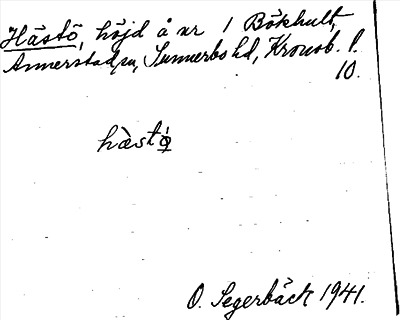 Hästö, höjd å nr 1 Bökhult,
Annerstad sn, Sunnerbo hd, Kronob. l.
10.
hàstǫ́
O. Segerbäck 1941.